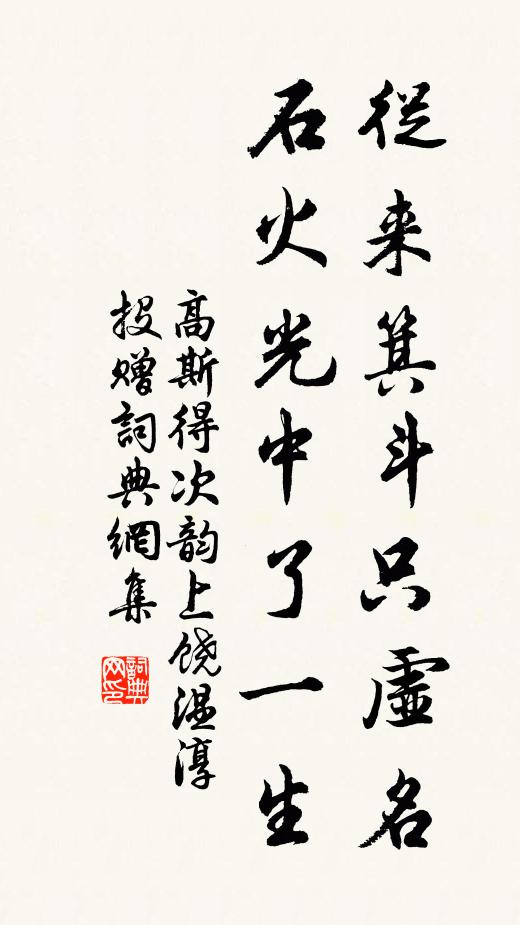 從来箕斗只虛名
石火光中了一生
高斯得次韵上饶温淳
投贈詞典網集
詞典网印